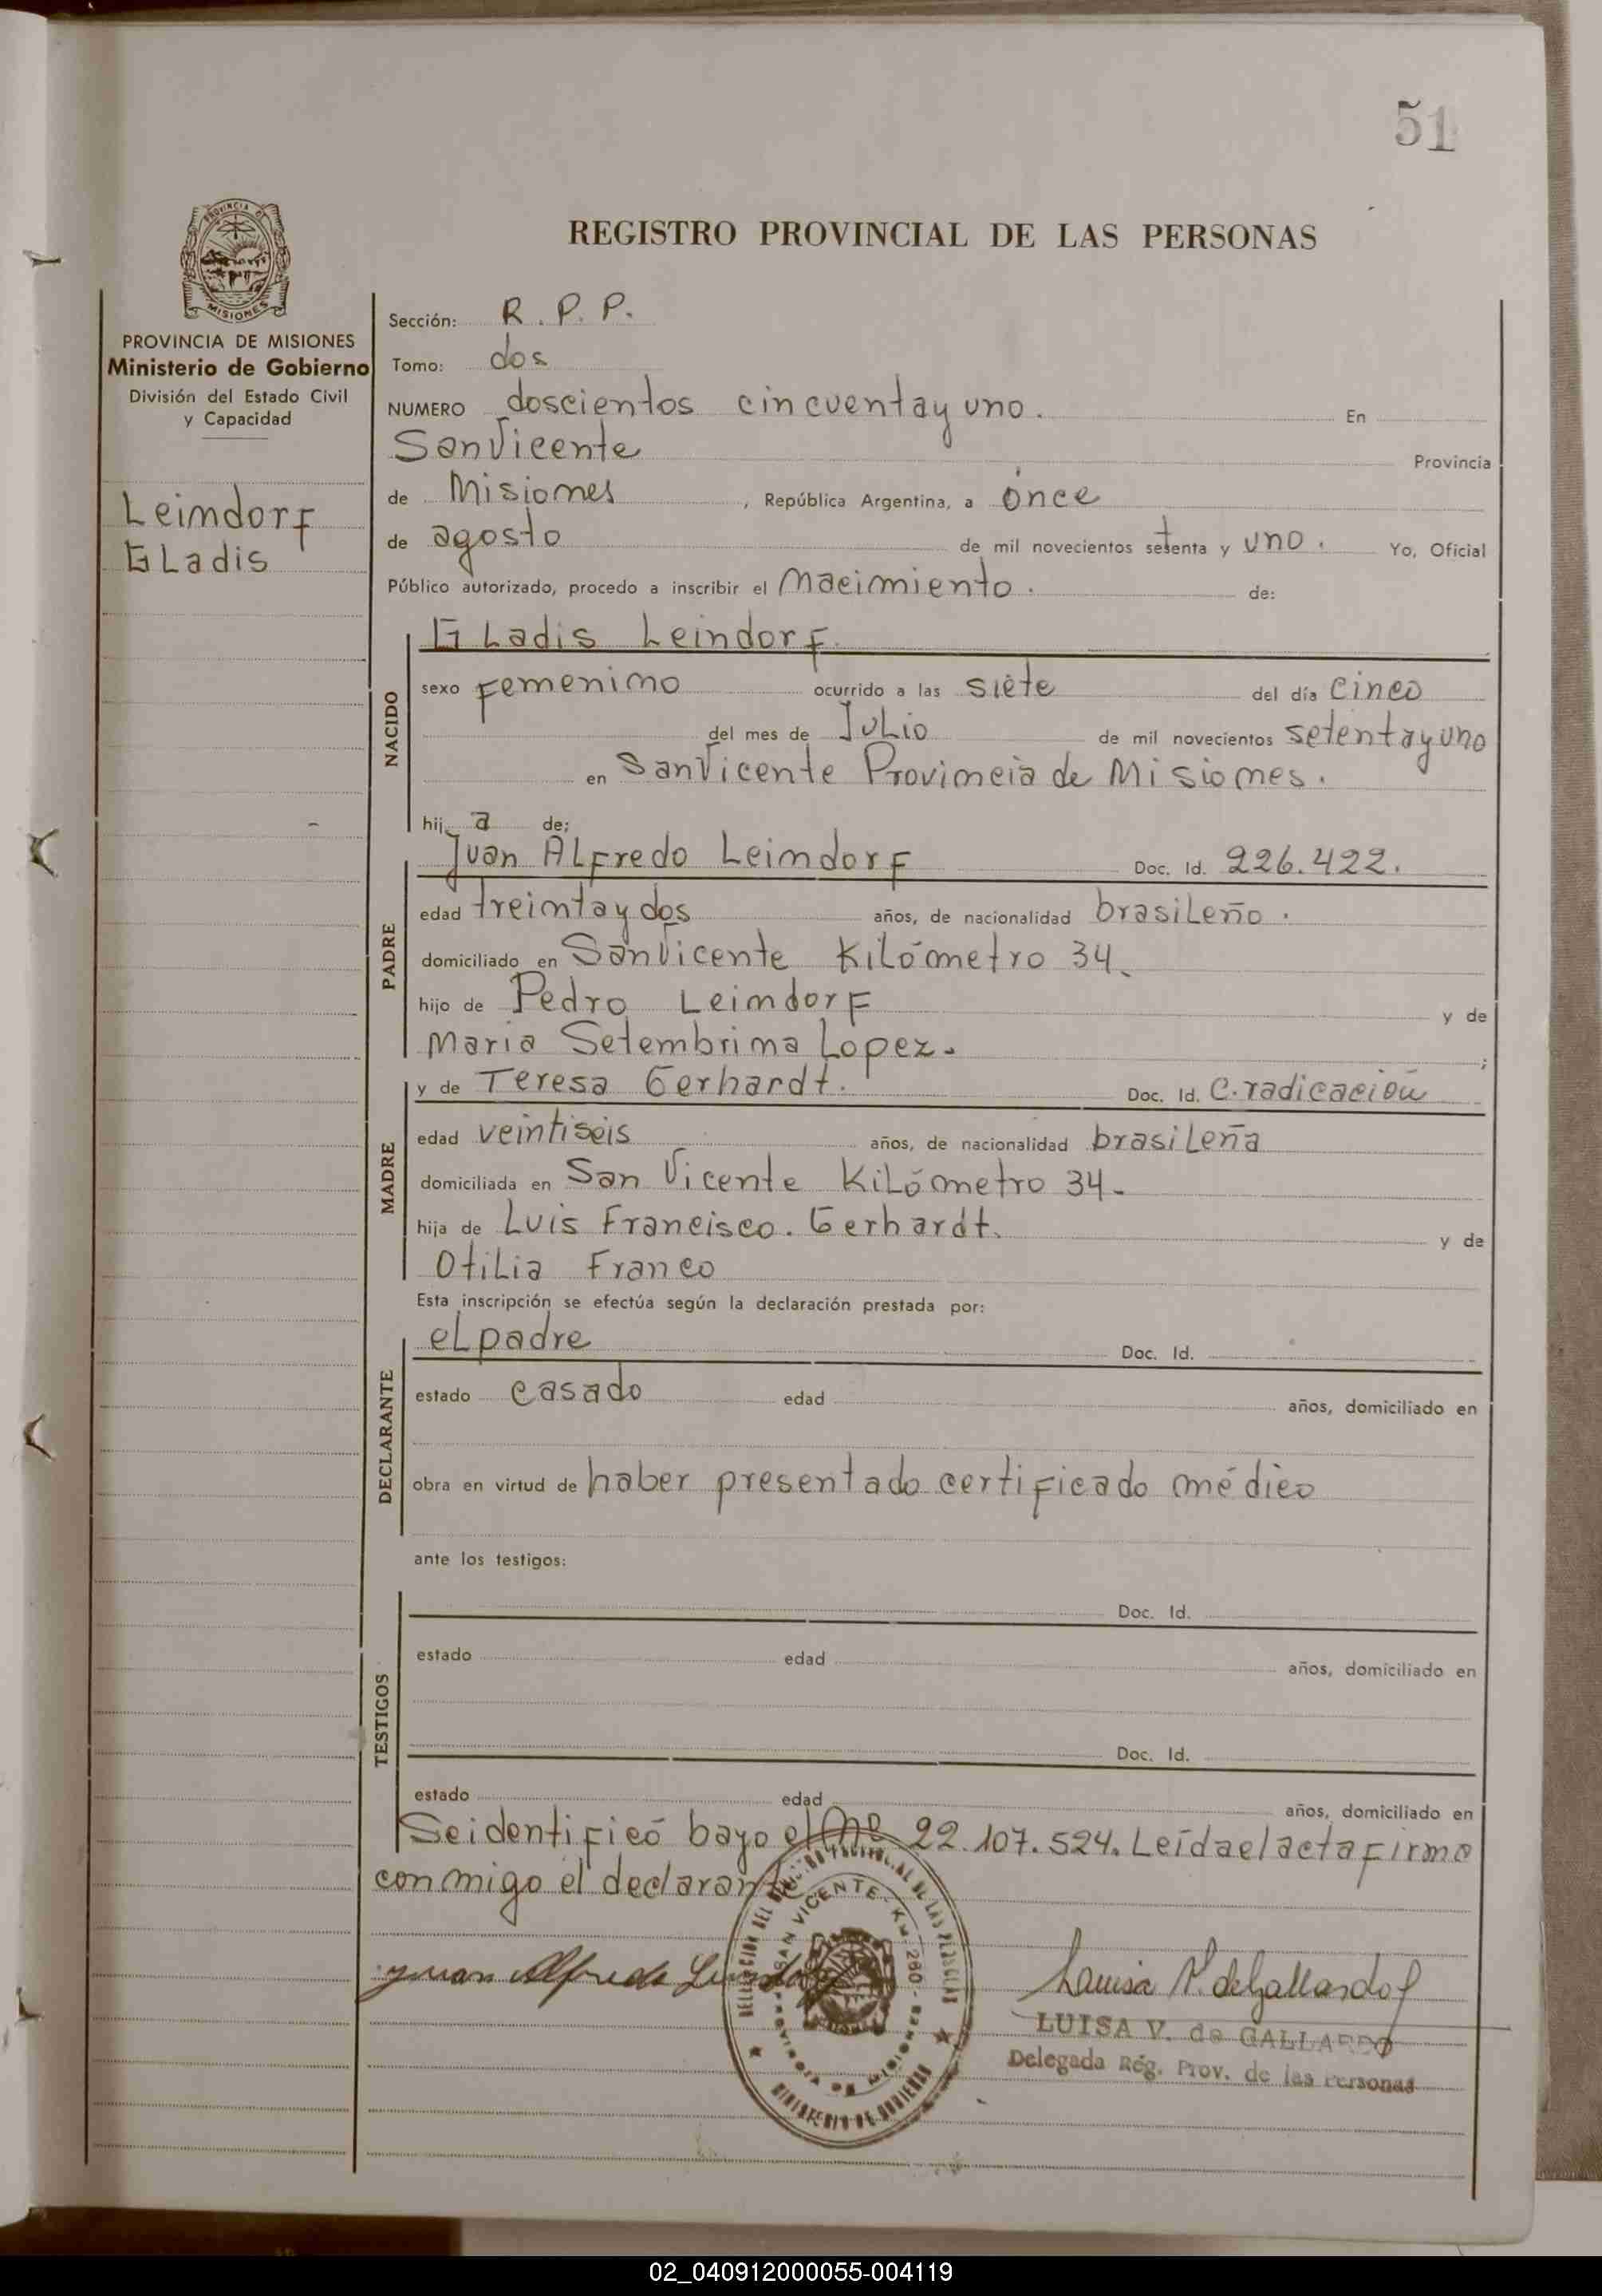 51
PROVINCIA DE
MISIONES
REGISTRO PROVINCIAL DE LAS PERSONAS
PROVINCIA DE MISIONES
Ministerio de Gobierno
División del Estado Civil
y Capacidad
Leimdorf
GLadis
Sección: R. P. P.
Tomo: dos
NUMERO doscientos cincuentay uno. En
SanVicente Provincia
de Misiones, República Argentina, a once
de agosto de mil novecientos setenta y uno. Yo, Oficial
Público autorizado, procedo a inscribir el nacimiento. de:
NACIDO
GLadis Leindorf
sexo femenino ocurrido a las siete del día cinco
del mes de Julio de mil novecientos setentayuno
en SanVicente Provincia de Misiones.
hij a de;
PADRE
Juan ALfredo Leimdorf Doc. Id. 226.422.
edad treintay dos años, de nacionalidad brasiLeño.
domiciliado en SanVicente KiLómetro 34.
hijo de Pedro Leimdorf y de
Maria Setembrina Lopez. ;
MADRE
y de Teresa Gerhardt. Doc. Id. C. radicación
edad veintiseis años, de nacionalidad brasiLeña
domiciliada en San Vicente KiLómetro 34.
hija de Luis Francisco. Gerhardt. y de
OtiLia Franco
Esta inscripción se efectúa según la declaración prestada por:
DECLARANTE
eLpadre Doc. Id.
estado casado edad años, domiciliado en
obra en virtud de haber presentado certificado médico
ante los testigos:
TESTIGOS
Doc. Id.
estado edad años, domiciliado en
Doc. Id.
estado edad años, domiciliado en
Seidentificó bayo el Nº 22.107.524. Leídael acta firma
conmigo el declarante
Juan Alfredo Leindorf
Luisa V. deGallardo
LUISA V. de GALLARDO
Delegada Rég. Prov. de las Personas
SAN VICENTE - Km. 260 -
MINISTERIO DE GOBIERNO
02_040912000055-004119